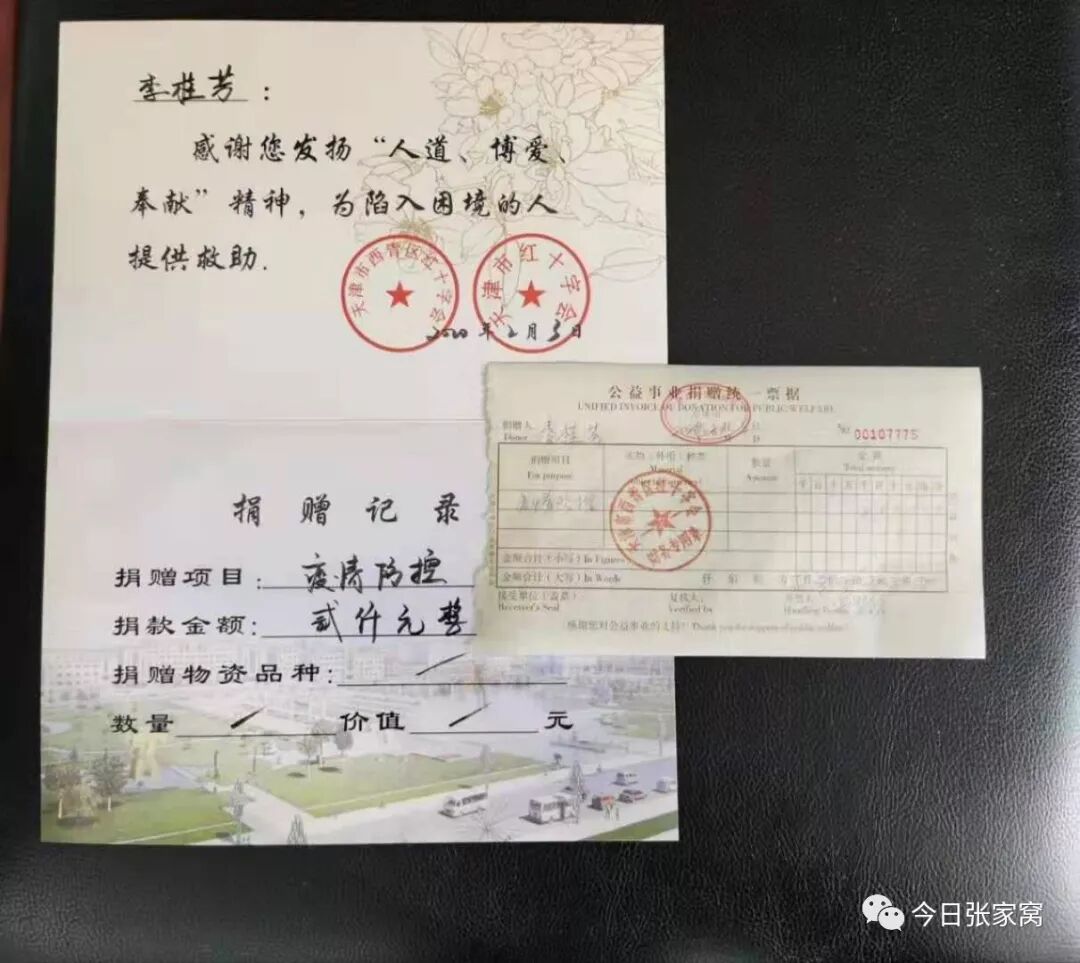 李桂芳：
感谢您发扬“人道、博爱、
奉献”精神，为陷入困境的人
提供救助.
天津市西青区红十字会
天津市红十字会
2020年2月5日
捐赠记录
捐赠项目：疫情防控
捐款金额：贰仟元整
捐赠物资品种：/
数量 / 价值 / 元
公益事业捐赠统一票据
UNIFIED INVOICE OF DONATION FOR PUBLIC WELFARE
捐赠人 李桂芳
Donor
No 00107775
捐赠项目
For purpose
实物（外币）种类
Material
数量
Amount
金额
Total money
疫情防控
天津市西青区红十字会
金额合计（小写）In Figures
金额合计（大写）In Words
接受单位（盖章）：
Receiver's Seal
复核人：
Verified by
开票人：
Handling Person
感谢您对公益事业的支持！Thank you for support of public welfare!
今日张家窝